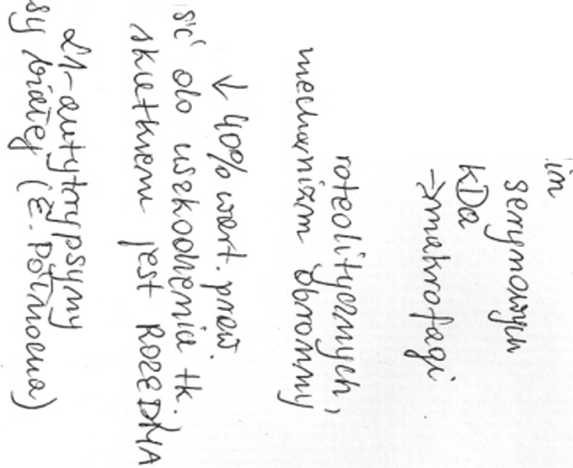 in
serynowych
kDa
→makrofagi
roteolitycznych,
mechanizm obronny
↓ 40% wart. praw.
sić do uszkodzenia tk.
skutkiem jest ROZEDMA
α1-antytrypsyny
sy białej (E. Północna)